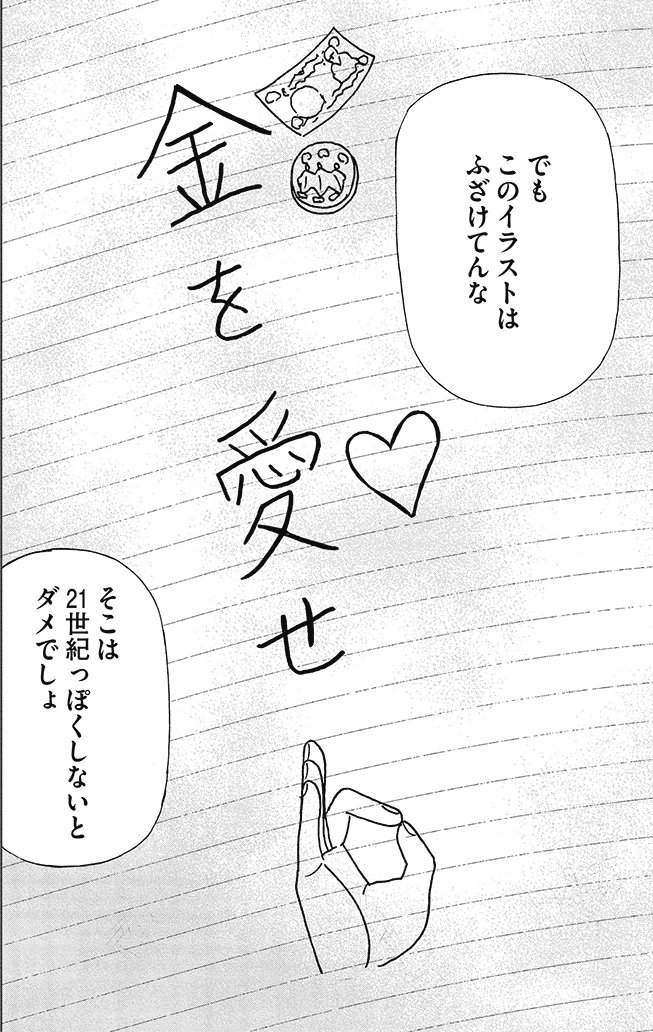 でも
このイラストは
ふざけてんな
金を愛せ
そこは
21世紀っぽくしないと
ダメでしょ